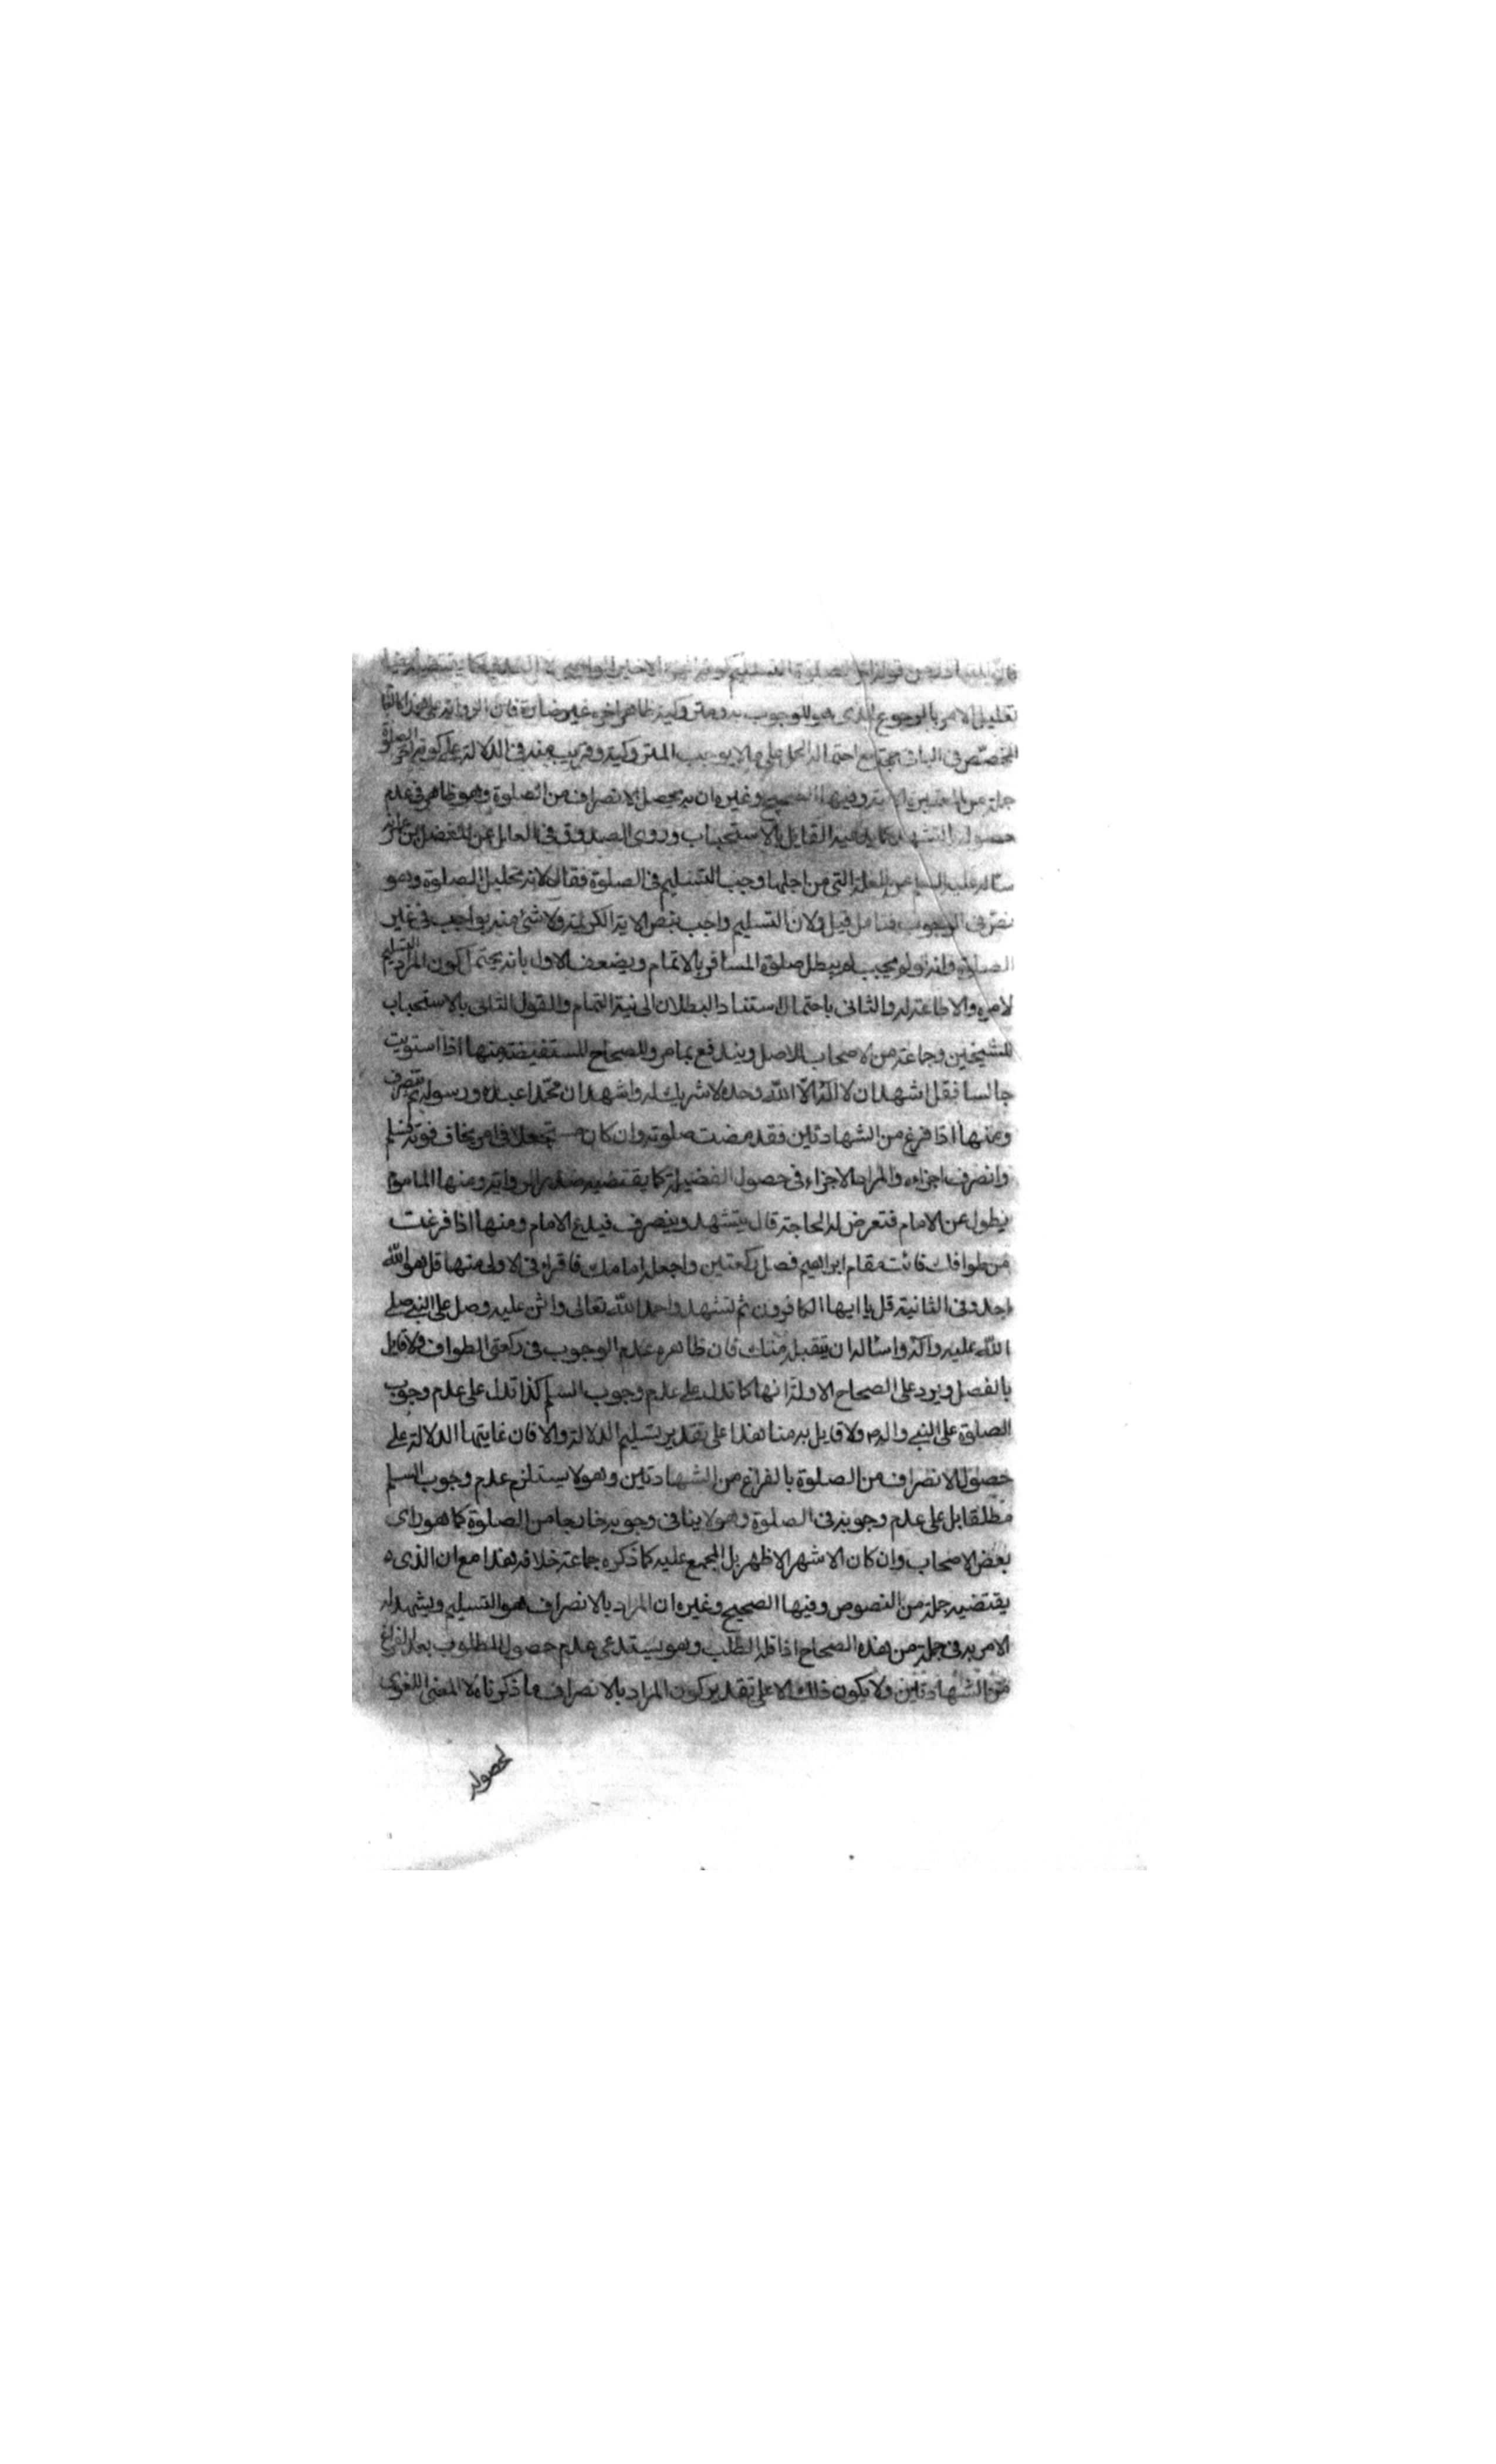 تعليل الامر بالرجوع الذى هو للوجوب به ومتروكية ظاهر اخره غير ضارة فان الرواية على هذا كالعام
المخصص فى الباقى حجة مع احتمال الحمل على ما لا يوجب المتروكية وقريب منه فى الدلالة على كونه اخر الصلوة
جملة من المعتبرة الاتية وفيها الصحيح وغيره ان به يحصل الانصراف من الصلوة وهو ظاهر فى عدم
حصوله بالتشهد كما يدعيه القايل بالاستحباب وروى الصدوق فى العلل عن المفضل بن عمر انه
سئاله عليه السلم عن العلة التى من اجلها وجب التسليم فى الصلوة فقال لانه تحليل الصلوة وهو
نص فى الوجوب فتامل قيل ولان التسليم واجب بنص الاية الكريمة ولا شئ منه بواجب فى غير
الصلوة وانه لو لم يجب لم يبطل صلوة المسافر بالاتمام ويضعف الاول بانه يحتمل كون المراد التسليم
لامره والاطاعة له والثانى باحتمال استناد البطلان الى نية التمام والقول الثانى بالاستحباب
للشيخين وجماعة من الاصحاب للاصل ويندفع بما مر وللصحاح المستفيضة منها اذا استويت
جالسا فقل اشهد ان لا اله الا الله وحده لا شريك له واشهد ان محمدا عبده ورسوله ثم تنصرف
ومنها اذا فرغ من الشهادتين فقد مضت صلوته وان كان مستعجلا فى امر يخاف فوته فسلم
وانصرف اجزاءه والمراد الاجزاء فى حصول الفضيلة كما يقتضيه صدر الرواية ومنها الماموم
يطول عن الامام فتعرض له الحاجة قال يتشهد وينصرف فيدع الامام ومنها اذا فرغت
من طوافك فائت مقام ابراهيم فصل ركعتين واجعله امامك فاقراء فى الاولى منها قل هو الله
احد وفى الثانية قل يا ايها الكافرون ثم تشهد واحمد الله تعالى واثن عليه وصل على النبي صلى
الله عليه واله واسئاله ان يتقبله منك فان ظاهره عدم الوجوب فى ركعتى الطواف ولا قايل
بالفصل ويرد على الصحاح الاولة انها كما تدل على عدم وجوب السلم كذا تدل على عدم وجوب
الصلوة على النبي واله ولا قايل به منا هذا على تقدير تسليم الدلالة والا فان غايتها الدلالة على
حصول الانصراف من الصلوة بالفراغ من الشهادتين وهو لا يستلزم عدم وجوب السلم
مطلقا بل على عدم وجوبه فى الصلوة وهو لا ينافى وجوبه خارجا من الصلوة كما هو راى
بعض الاصحاب وان كان الاشهر الاظهر بل المجمع عليه كما ذكره جماعة خلافه هذا مع ان الذى
يقتضيه جملة من النصوص وفيها الصحيح وغيره ان المراد بالانصراف هو التسليم ويشهد له
الامر به فى جملة من هذه الصحاح اذا قله الطلب وهو يستدعى عدم حصول المطلوب بعد الفراغ
من الشهادتين ولا يكون ذلك الا على تقدير كون المراد بالانصراف ما ذكرناه لا المعنى اللغوى
لحصوله